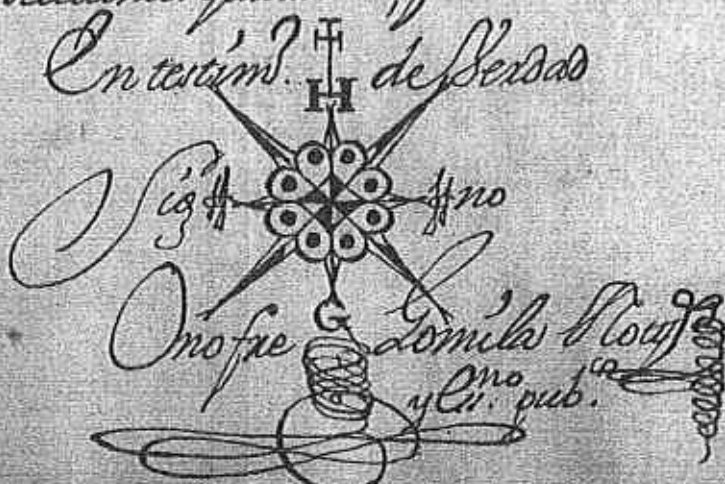 En testim.º de Verdad
H
Sig no
G
Onofre Gomila Notº
y En.no pub.co